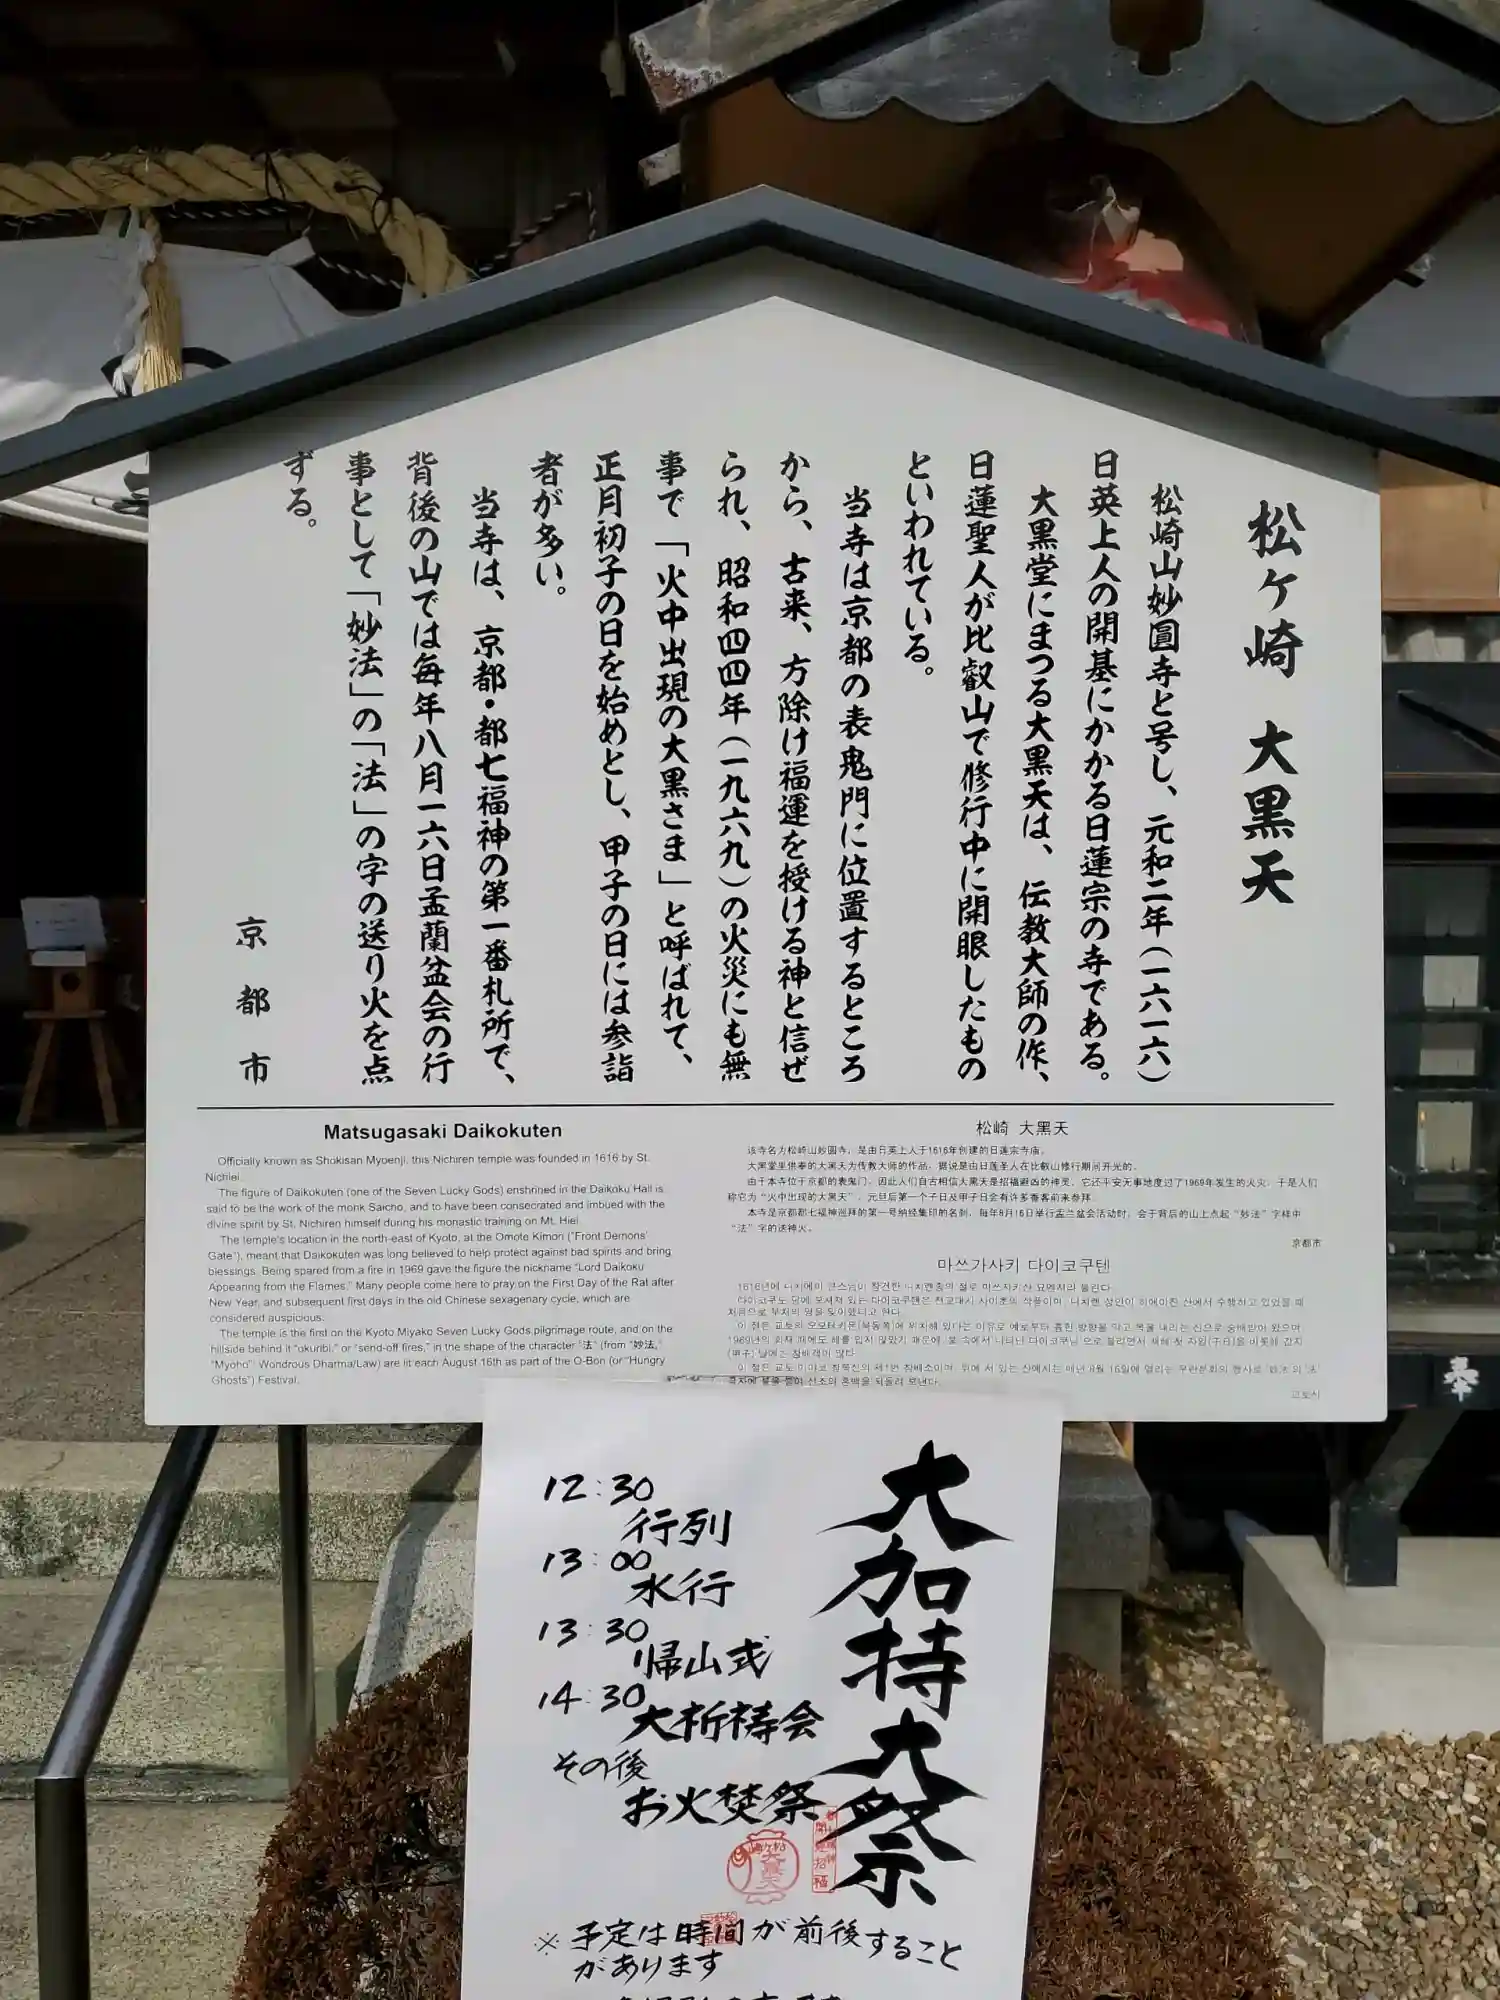 松ヶ崎 大黒天
松崎山妙圓寺と号し、元和二年(一六一六)
日英上人の開基にかかる日蓮宗の寺である。
大黒堂にまつる大黒天は、伝教大師の作、
日蓮聖人が比叡山で修行中に開眼したもの
といわれている。
当寺は京都の表鬼門に位置するところ
から、古来、方除け福運を授ける神と信ぜ
られ、昭和四四年(一九六九)の火災にも無
事で「火中出現の大黒さま」と呼ばれて、
正月初子の日を始めとし、甲子の日には参詣
者が多い。
当寺は、京都・都七福神の第一番札所で、
背後の山では毎年八月一六日盂蘭盆会の行
事として「妙法」の「法」の字の送り火を点
ずる。
京都市
Matsugasaki Daikokuten
Officially known as Shokisan Myoenji, this Nichiren temple was founded in 1616 by St.
Nichiei.
The figure of Daikokuten (one of the Seven Lucky Gods) enshrined in the Daikoku Hall is
said to be the work of the monk Saicho, and to have been consecrated and imbued with the
divine spirit by St. Nichiren himself during his monastic training on Mt. Hiei.
The temple's location in the north-east of Kyoto, at the Omote Kimon ("Front Demons'
Gate"), meant that Daikokuten was long believed to help protect against bad spirits and bring
blessings. Being spared from a fire in 1969 gave the figure the nickname "Lord Daikoku
Appearing from the Flames." Many people come here to pray on the First Day of the Rat after
New Year, and subsequent first days in the old Chinese sexagenary cycle, which are
considered auspicious.
The temple is the first on the Kyoto Miyako Seven Lucky Gods pilgrimage route, and on the
hillside behind it "okuribi," or "send-off fires," in the shape of the character "法" (from "妙法,"
"Myoho": Wondrous Dharma/Law) are lit each August 16th as part of the O-Bon (or "Hungry
Ghosts") Festival.
松崎 大黑天
该寺名为松崎山妙圆寺，是由日英上人于1616年创建的日莲宗寺庙。
大黑堂里供奉的大黑天为传教大师的作品，据说是由日莲圣人在比叡山修行期间开光的。
由于本寺位于京都的表鬼门，因此人们自古相信大黑天是招福避凶的神灵，它还平安无事地度过了1969年发生的火灾，于是人们
称它为“火中出现的大黑天”，元旦后第一个子日及甲子日会有许多香客前来参拜。
本寺是京都都七福神巡拜的第一号纳经集印的名刹，每年8月16日举行盂兰盆会活动时，会于背后的山上点起“妙法”字样中
“法”字的送神火。
京都市
마쓰가사키 다이코쿠텐
교토시
大加持大祭
12:30
行列
13:00
水行
13:30
帰山式
14:30
大祈祷会
その後
お火焚祭
※ 予定は時間が前後すること
があります